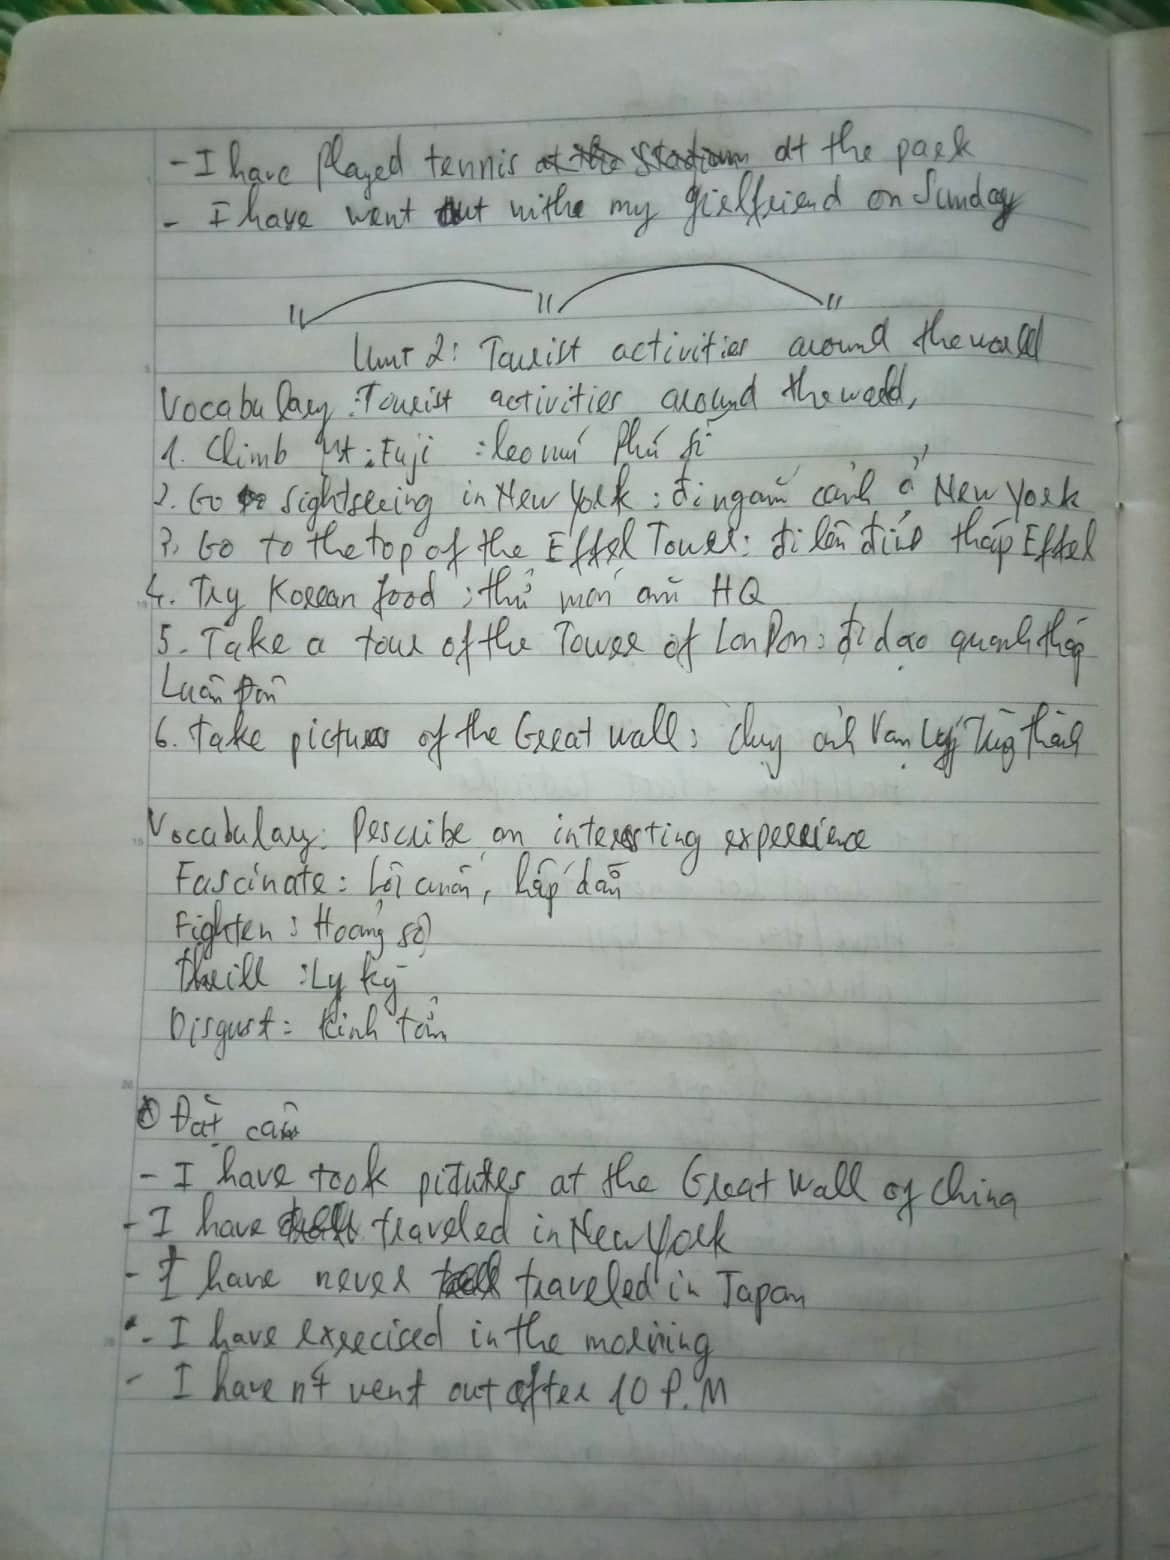 - I have played tennis at the park
- I have went out withe my girlfriend on Sunday
Unit 2: Tourist activities around the world
Vocabulary: Tourist activities around the world,
1. Climb Mt. Fuji : leo núi Phú Sĩ
2. Go sightseeing in New York : đi ngắm cảnh ở New York
3. Go to the top of the Effel Tower: đi lên đỉnh tháp Effel
4. Try Korean food ; thử món ăn HQ
5. Take a tour of the Tower of LonDon : đi dạo quanh tháp
Luân Đôn
6. take pictures of the Great wall : chụp ảnh Vạn Lý Trường thành
Vocabulary: Describe an interesting experience
Fascinate : Lôi cuốn, hấp dẫn
Fighten : Hoảng sợ
thrill : Ly kỳ
Disgust : Kinh tởm
Đặt câu
- I have took pictures at the Great Wall of China
- I have traveled in New York
- I have never traveled in Japan
- I have exrecised in the morining
- I haven't went out after 10 P.M